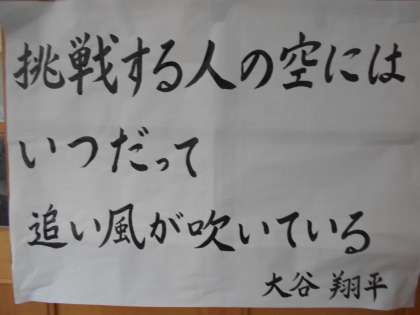 挑戦する人の空には
いつだって
追い風が吹いている
大谷 翔平